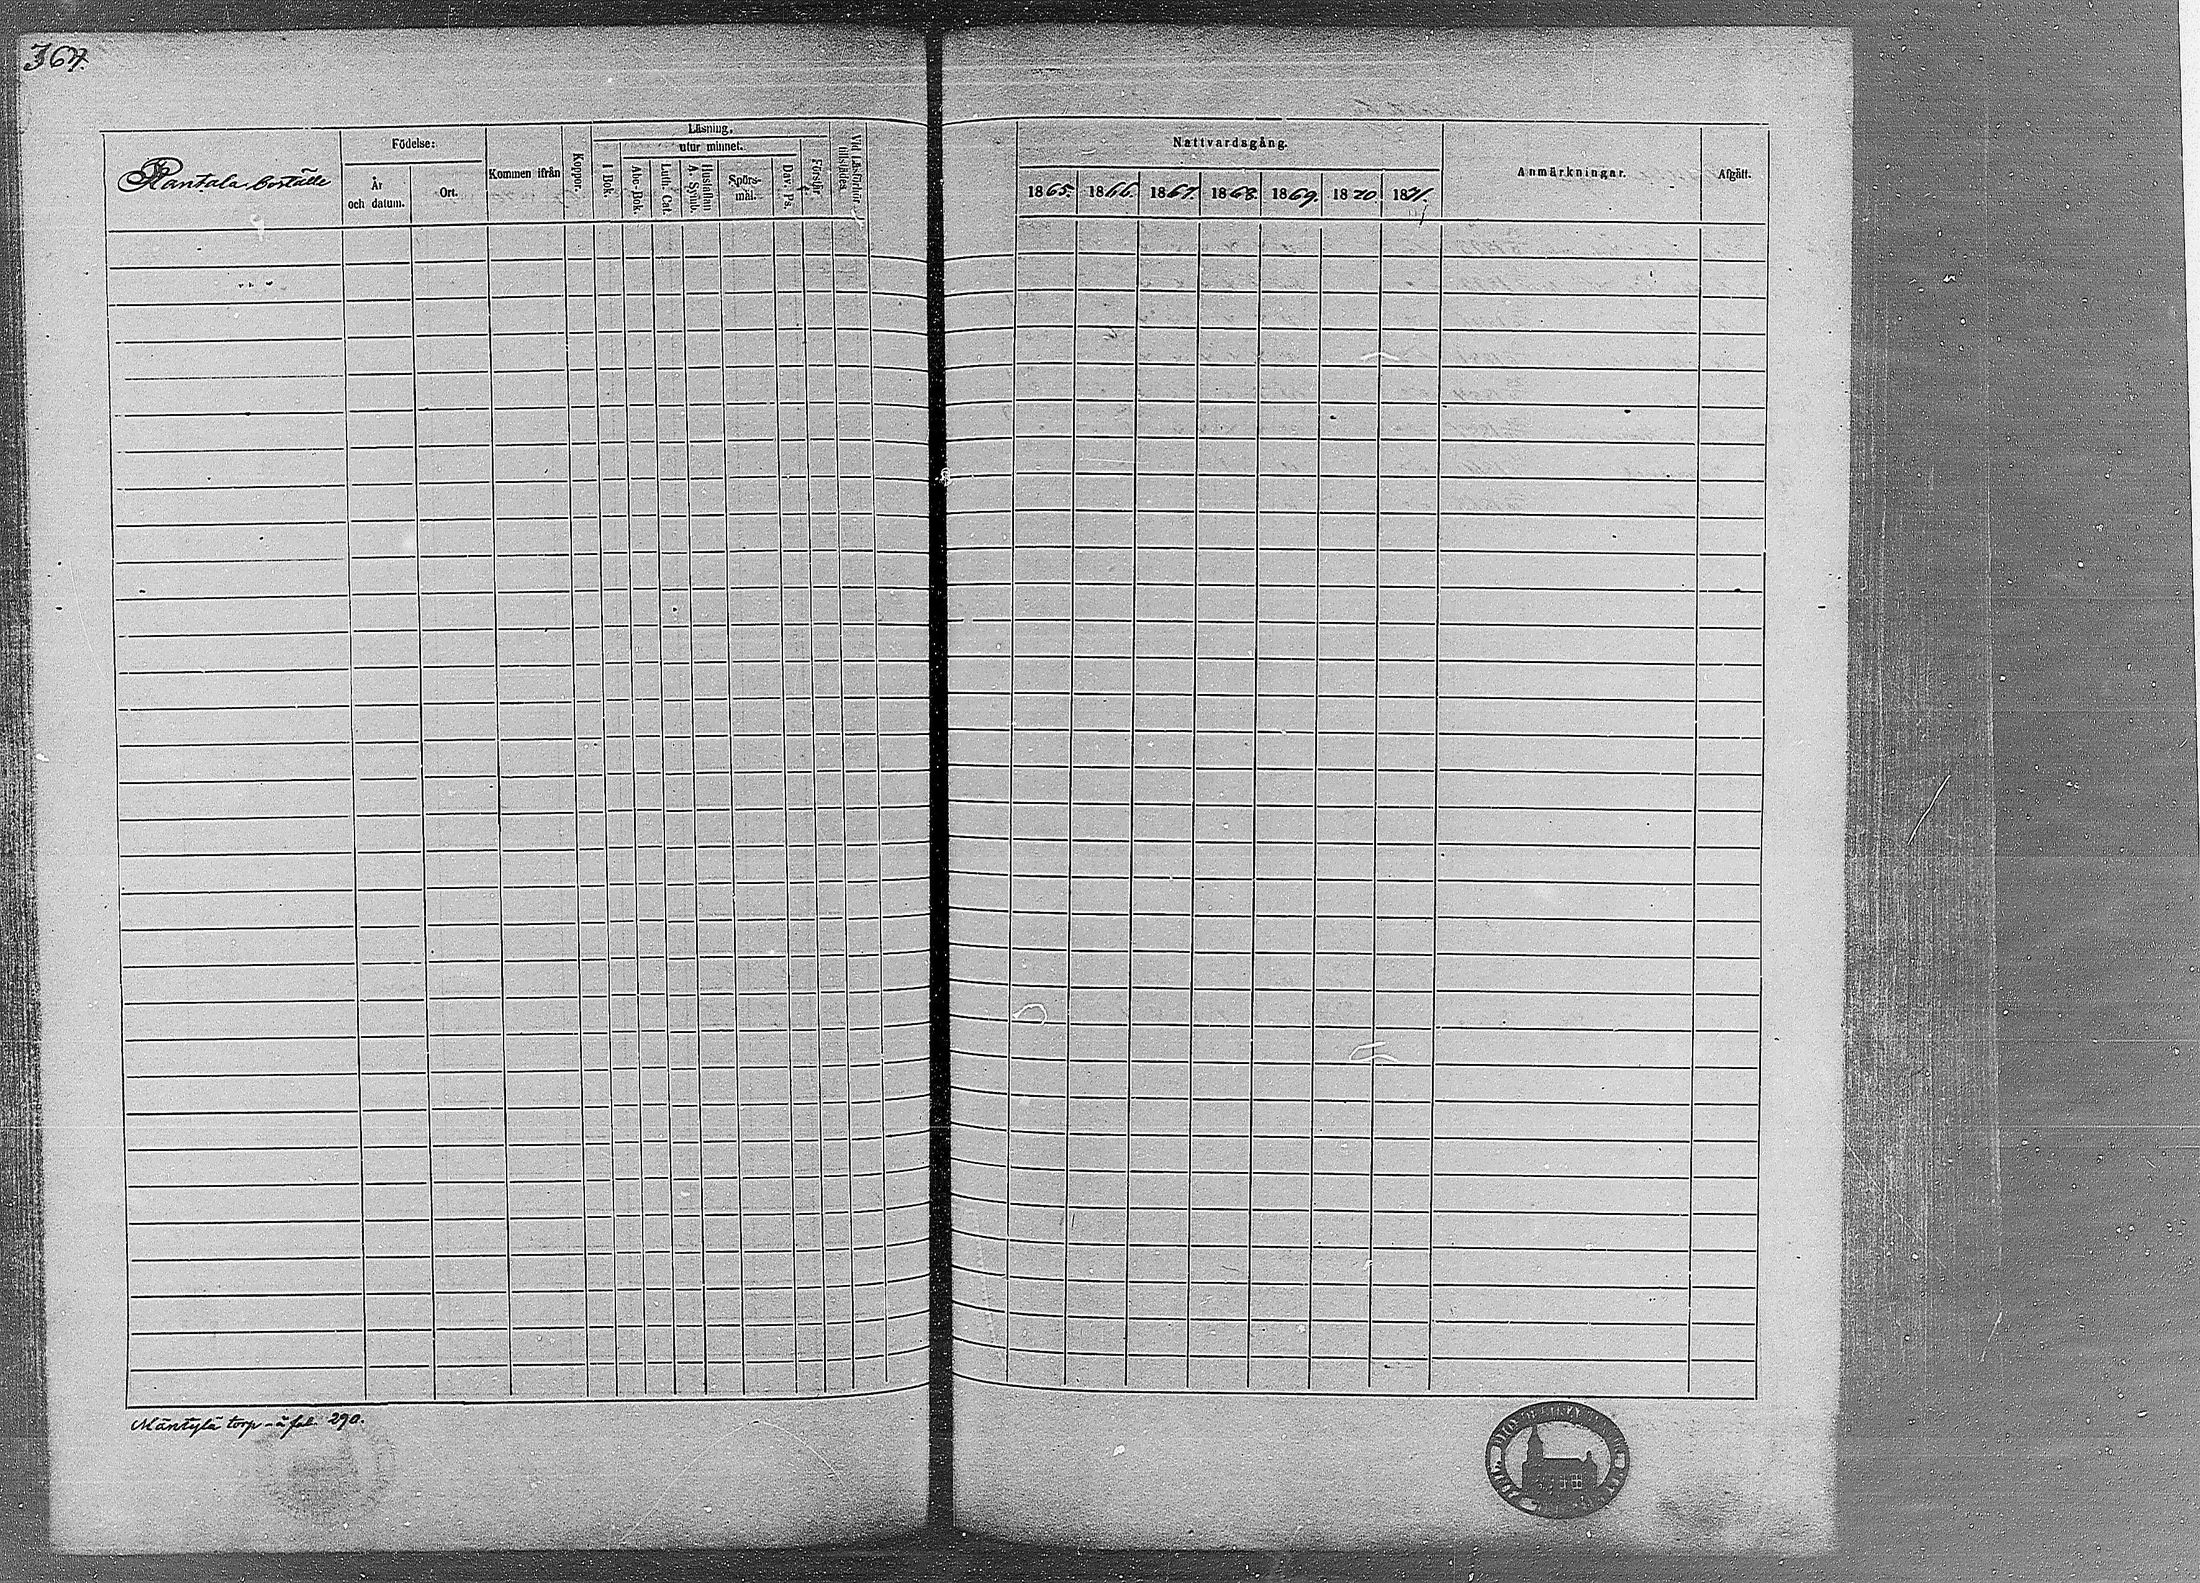 364.
Rantala boställe
Födelse:
År
och datum.
Ort.
Kommen ifrån
Koppor.
Läsning,
utur minnet.
I Bok.
Abc-Bok.
Luth. Cat.
Hustaflan
A. Symb.
Spörs-
mål.
Dav. Ps.
Förstår.
Vid Läsförhör
Nattvardsgång.
1865. 1866. 1867. 1868. 1869. 1870 1871.
Anmärkningar.
Afgått.
Mäntylä torp - å fol. 290.